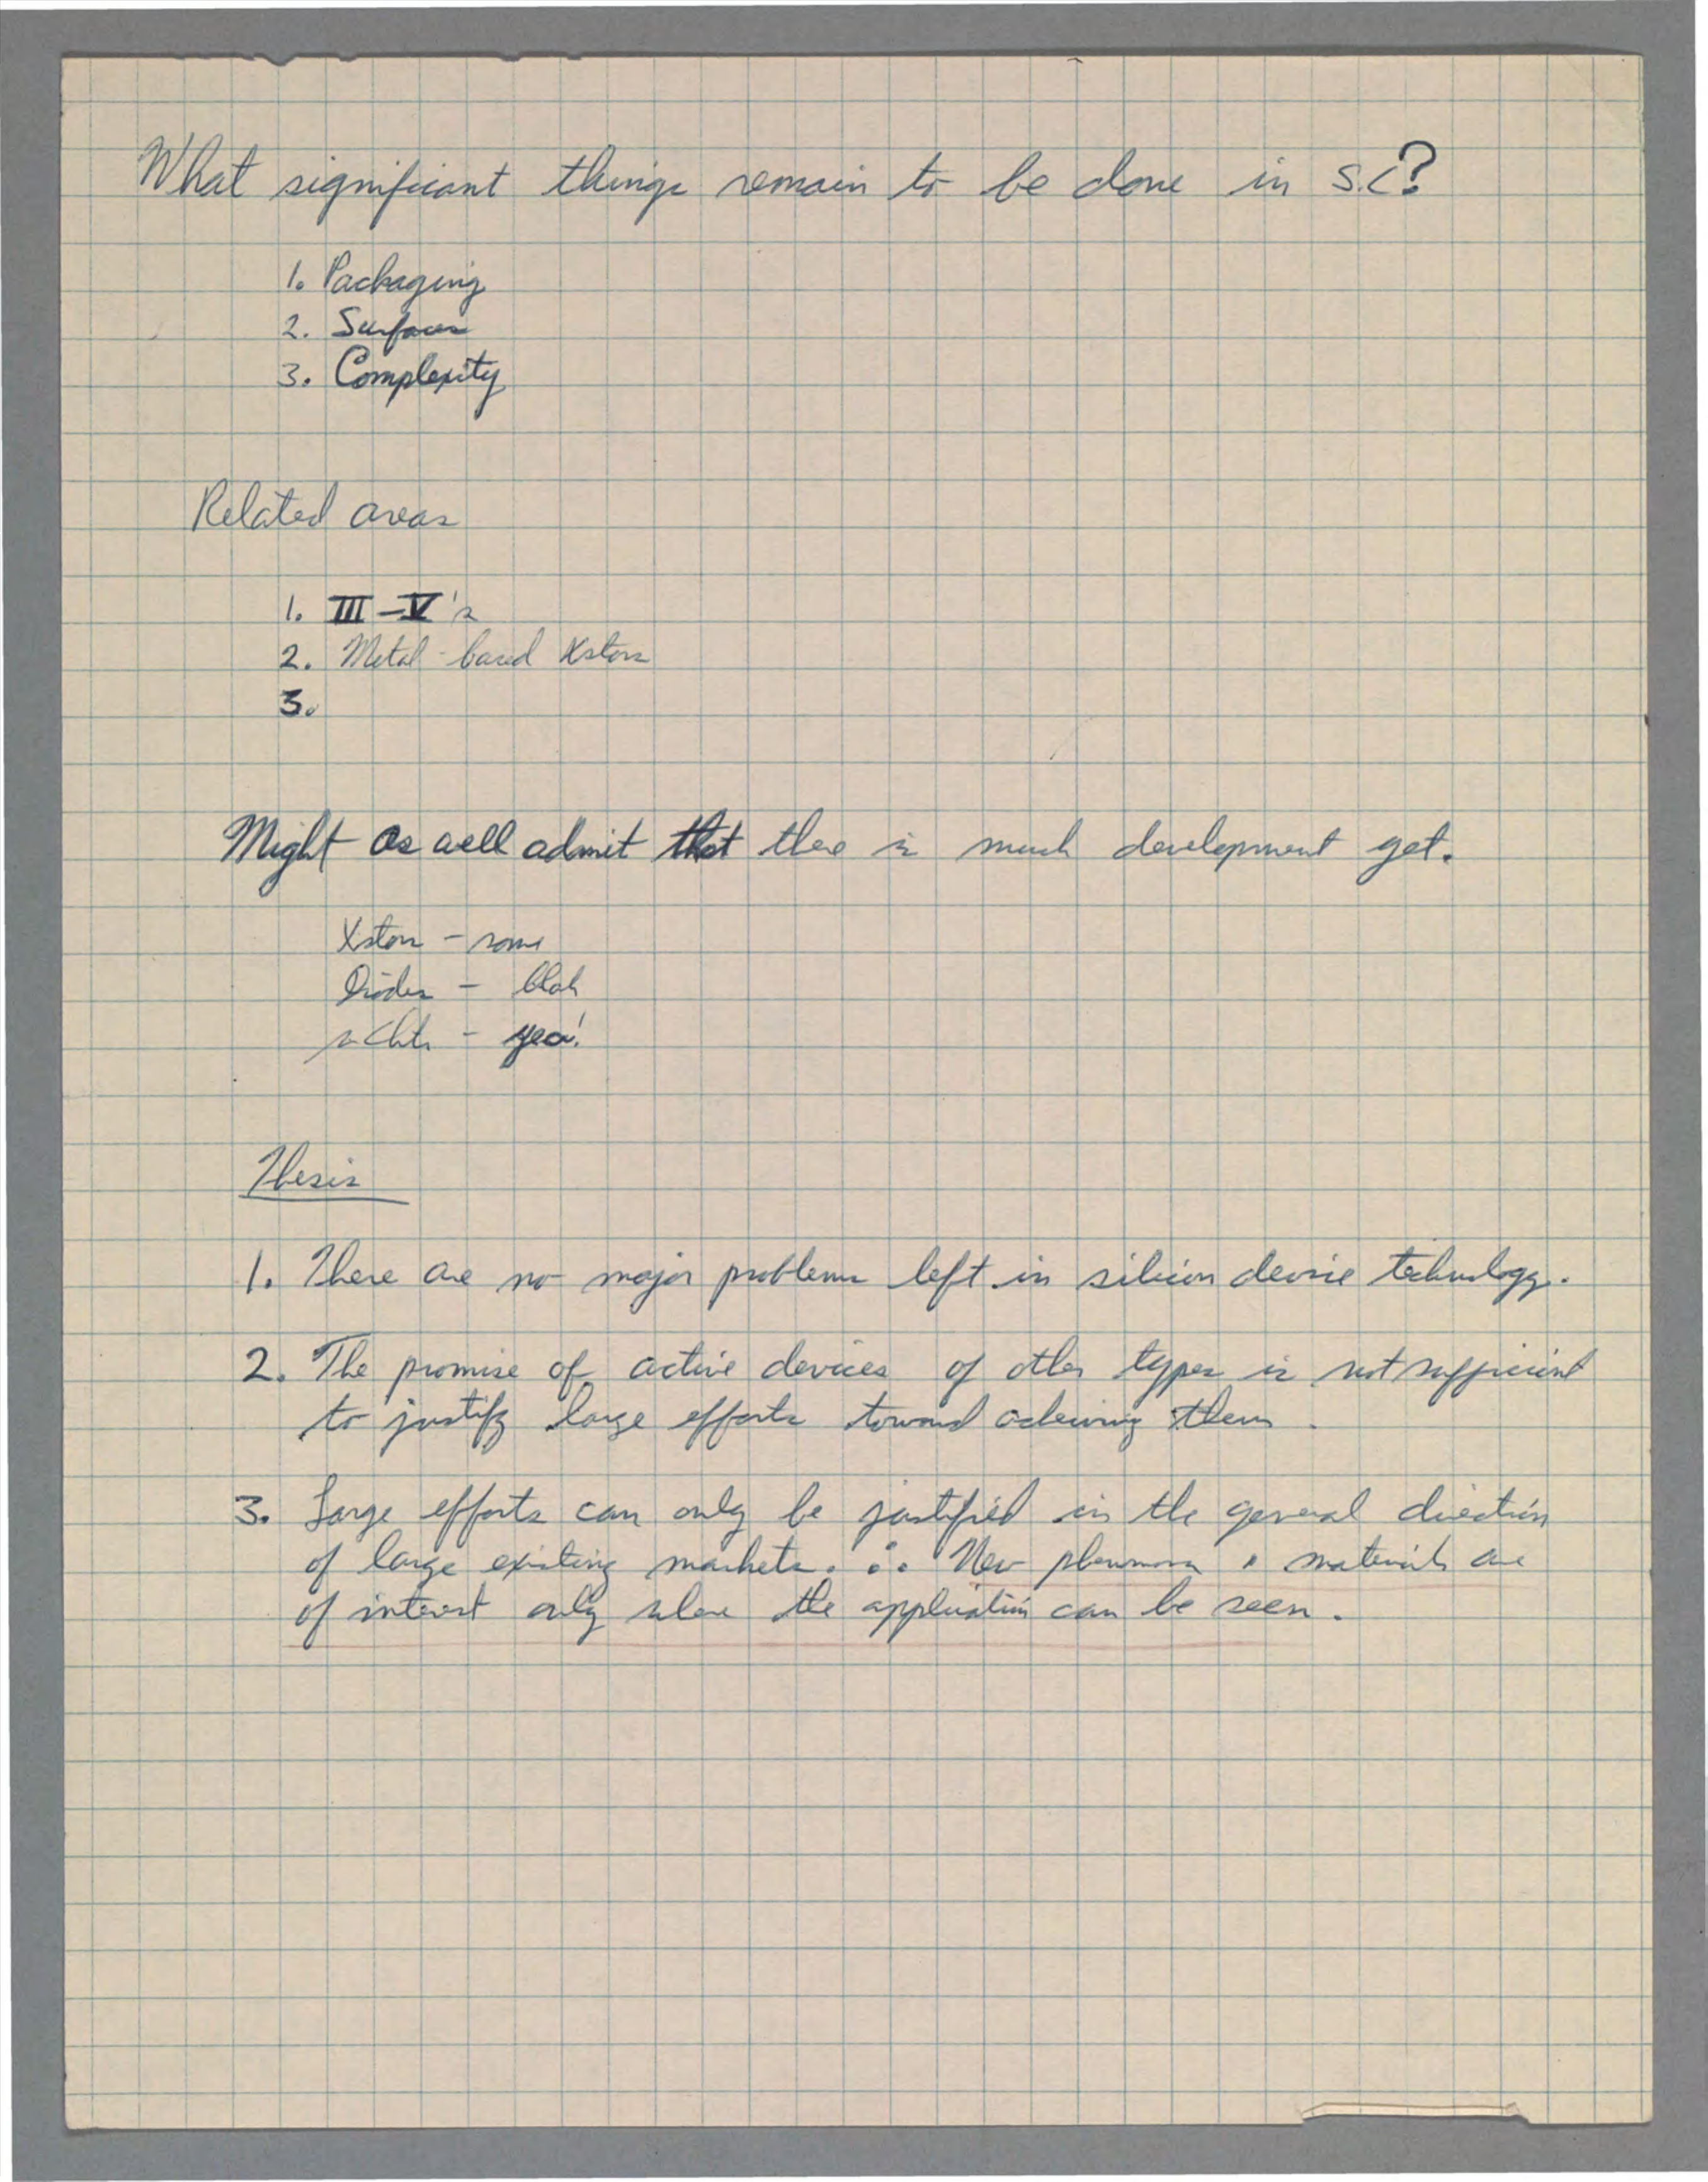 What significant things remain to be done in S.C?
1. Packaging
2. Surfaces
3. Complexity
Related areas
1. III-V's
2. Metal-based Xstors
3.
Might as well admit that there is much development yet.
Xstors - some
Diodes - blah
μ Ckts - yea!
Thesis
1. There are no major problems left in silicon device technology.
2. The promise of active devices of other types is not sufficient
to justify large efforts toward acheiving them.
3. Large efforts can only be justified in the general direction
of large existing markets. ∴ New phenomena & materials are
of interest only where the application can be seen.